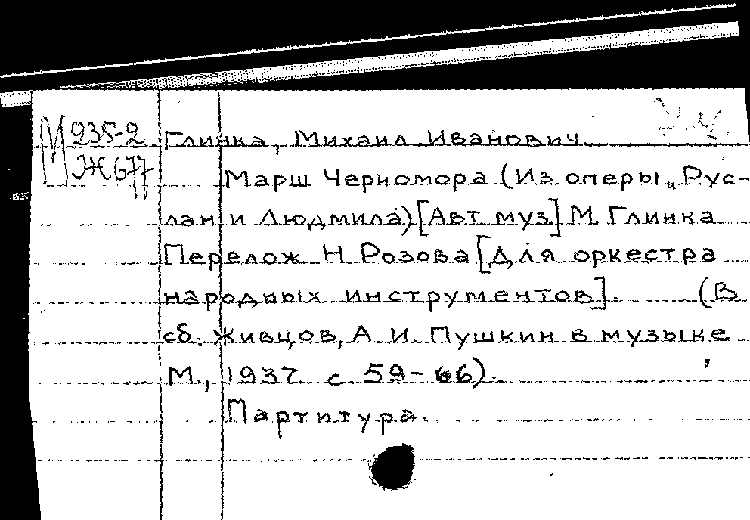 М 235-2
Ж 677
Глинка, Михаил Иванович.
Марш Черномора (Из оперы „Рус-
лан и Людмила) [Авт муз] М. Глинка
Перелож. Н. Розова [Для оркестра
народных инструментов]. (В
сб. Живцов, А. И. Пушкин в музыке
М., 1937. с. 59-66).
Партитура.